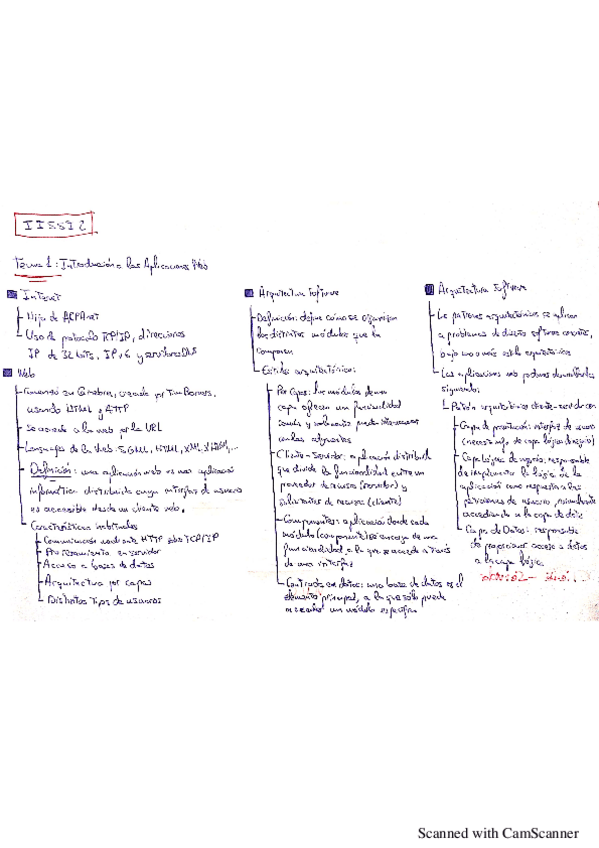 IISSI 2
Tema 1: Introducción a las Aplicaciones Web
Internet
Hija de ARPAnet
Uso de protocolo TCP/IP, direcciones
IP de 32 bits, IPv6 y servidores DNS
Web
Comenzó en Ginebra, creado por Tim Berners,
usando HTML y HTTP
Se accede a la web por la URL
Lenguajes de la Web: SGML, HTML, XML, XHTML,...
Definición: una aplicación web es una aplicación
informática distribuida cuya interfaz de usuario
es accesible desde un cliente web.
Características habituales
Comunicación mediante HTTP sobre TCP/IP
Procesamiento en servidor
Acceso a bases de datos
Arquitectura por capas
Distintos tipos de usuarios
Arquitectura Software
Definición: define cómo se organizan
los distintos módulos que la
componen
Estilos arquitectónicos:
Por Capas: los módulos de una
capa ofrecen una funcionalidad
y solamente puede
con las adyacentes
Cliente-Servidor: aplicación distribuida
que divide la funcionalidad entre un
proveedor de recursos (servidor) y
solicitantes de recursos (cliente)
Componentes: aplicación donde cada
módulo (componente) encarga de una
funcionalidad a la que se accede a través
de una interfaz
Centrado en datos: una base de datos es el
elemento principal, a la que sólo puede
un módulo específico
Arquitectura Software
Los patrones arquitectónicos se aplican
a problemas de diseño software concretos,
bajo uno o más estilos arquitectónicos
Las aplicaciones web podemos
siguiendo:
Patrón arquitectónico cliente-servidor con:
Capa de presentación: interfaz de usuario
(necesita info de capa lógica (negocio))
Capa lógica de negocio, responsable
de implementar la lógica de la
aplicación como respuesta a las
peticiones de usuario, normalmente
accediendo a la capa de datos
Capa de Datos: responsable
de proporcionar acceso a datos
a la capa lógica
Scanned with CamScanner